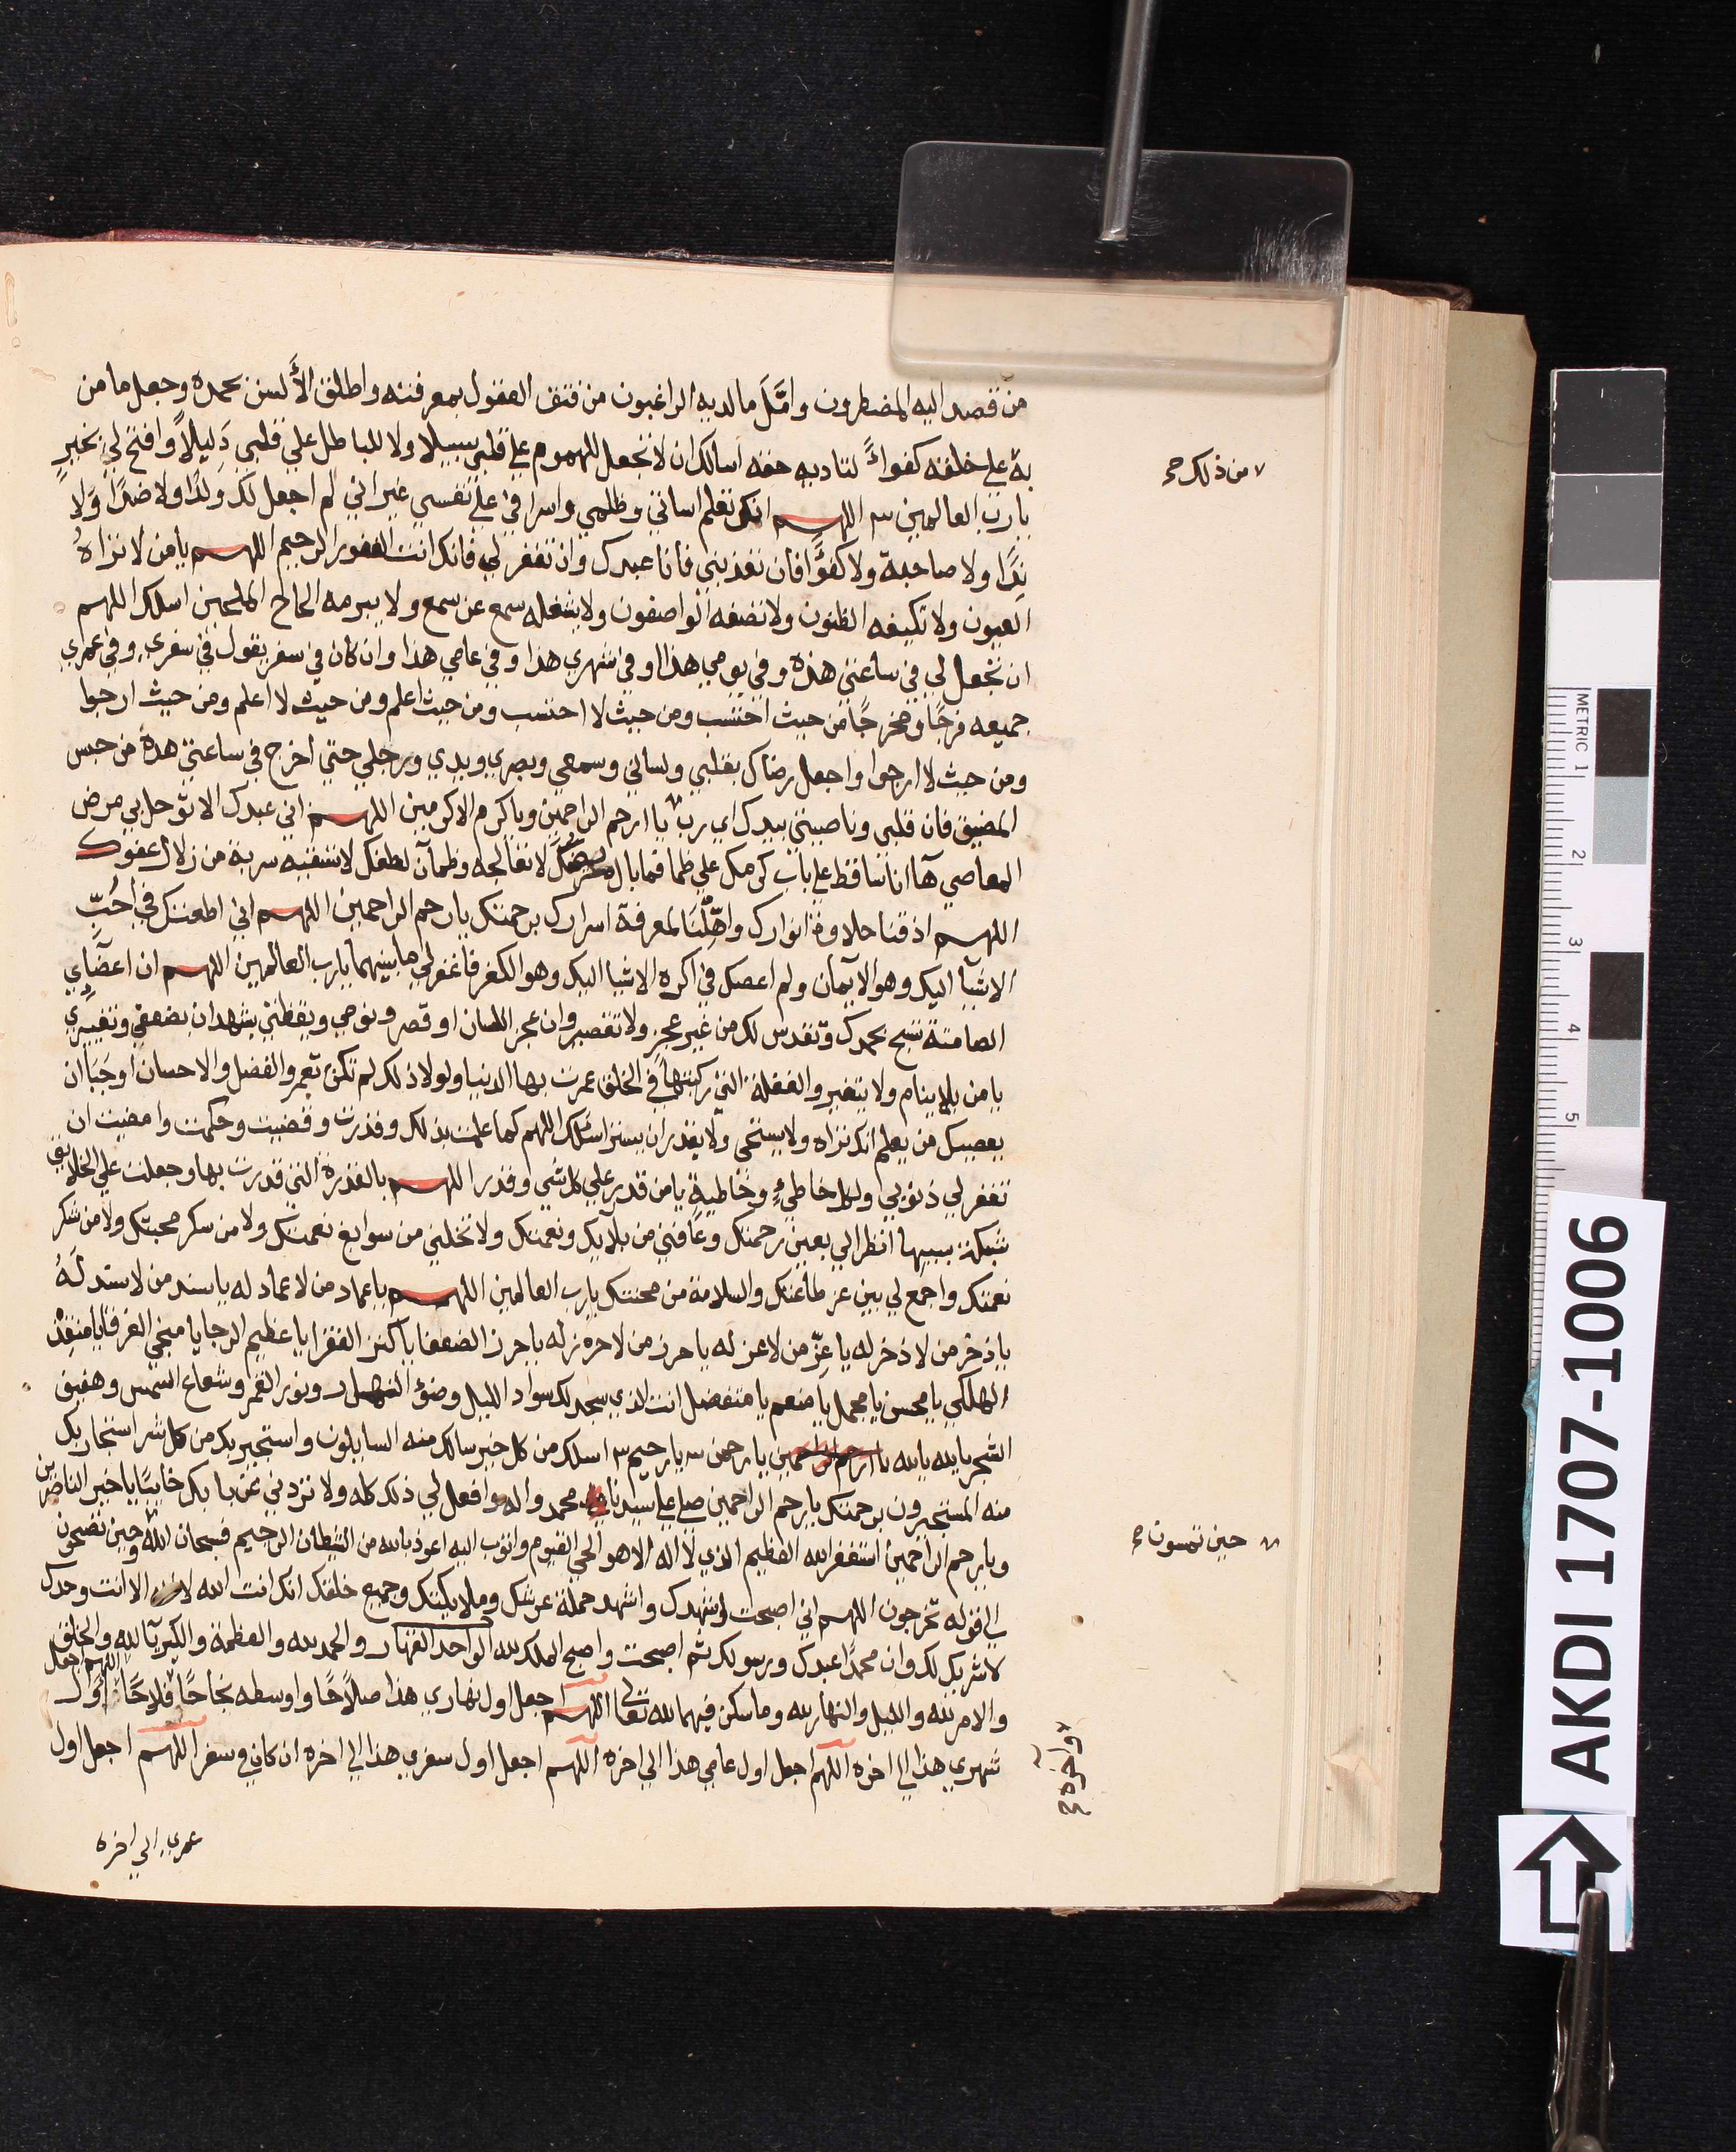 من قصد اليه المضطرون وامَّلَ ما لديه الراغبون من فتق العقول بمعرفته واطلق الألسن بحمده وجعل ما من
به على خلقه كفواءً لتاديه حقه اسالك ان لا تجعل للهموم على قلبي سبيلا ولا للباطل على قلبي دَلِيلاً وافتح لي بخيرٍ
يا رب العالمين اللهم انك تعلم اساتي وظلمي واسرافي على نفسي غير اني لم اجعل لك ولدًا ولا ضدًا وَلا
نِدًّا ولا صاحبة ولا كفوًا فان تعذبني فانا عبدك وان تغفر لي فانك انت الغفور الرحيم اللهم يا من لا تراهُ
العيون ولا تكيفه الظنون ولا تصفه الواصفون ولا يشغله سمع عن سمع ولا يبرمه الحاح الملحين اسلك اللهم
ان تجعل لي في ساعتي هذه وفي يومي هذا وفي شهري هذا وفي عامي هذا وان كان في سفر يقول في سفري وفي عمري
جميعه فرجًا ومخرجًا من حيث احتسب ومن حيث لا احتسب ومن حيث اعلم ومن حيث لا اعلم ومن حيث ارجوا
ومن حيث لا ارجوا واجعل رضاك بقلبي ولساني وسمعي وبصري ويدي ورجلي حتى اخرج في ساعتي هذه من حبس
المضيق فان قلبي وناصيتي بيدك اي رب يا ارحم الراحمين ويا كرم الاكرمين اللهم اني عبدك الابق حل بي مرض
المعاصي ها انا ساقط على باب كرمك على ظما فما بال لا تعالجه وظمآن لطفك لا تسقيه سربة من زلال عفوك
اللهم اذقنا حلاوة انوارك واهِّلْنَا لمعرفة اسرارك برحمتك يا رحم الراحمين اللهم اني اطعتك في احُبِّ
الاشيآ اليك وهو الايمان ولم اعصك في اكره الاشيا اليك وهو الكفر فاغفر لي ما بينهما يا رب العالمين اللهم ان اعضآي
الصامتة تسبح بحمدك وتقدس لك من غير عجز ولا تقصير وان عجز اللسان او قصر ونومي ويقظتي يشهدان بضعفي وتغييري
يا من لا ينام ولا يتغير والغفلة التي ركبتها في الخلق عمرت بها الدنيا ولولا ذلك لم تكن تعمر والفضل والاحسان اوجَبَا ان
يعصيك من يعلم انك تراه ولا يستحى ولا يقدر ان يستتر اسئلك اللهم كما علمت بذلك وقدرت وقضيت وحكمت وامضيت ان
تغفر لي ذنوبي ولكل خاطيء وخاطية يا من قدير على كل شي وقدر اللهم بالقدرة التي قدرت بها وجعلت على الخلايق
شبكة بسببها انظر الي بعين رحمتك وعافني من بلايك ونعمتك ولا تخلني من سوابغ نعمتك ولا من سكر محبتك ولا من شكر
نعمتك واجمع لي بين عز طاعتك والسلامة من محنتك يا رب العالمين اللهم يا عماد من لا عماد له يا سند من لا سند لَهُ
يا ذخر من لا ذخر له يا عِزّ من لا عز له يا حرز من لا حرز له يا حرز الضعفا يا كنز الفقرا يا عظيم الرجا يا منجي الغرقا يا منقذ
الهلكي يا محسن يا مجمل يا منعم يا متفضل انت الذي سجد لك سواد الليل وضؤ النهار ونور القمر وشعاع الشمس وهفيف
الشجر يا الله يا الله يا ارحم الراحمين يا رحمن يا رحيم اسلك من كل خير سالك منه السايلون واستجير بك من كل شر استجار بك
منه المستجيرون برحمتك يا رحم الراحمين صلى على سيدنا محمد واله وافعل لي ذلك كله ولا تردني عن بابك خايبًا يا خير الناصرين
ويا رحم الراحمين استغفر الله العظيم الذي لا اله الا هو الحي القيوم واتوب اليه اعوذ بالله من الشيطان الرجيم فسبحان الله وحين تصبحون
الى قوله تخرجون اللهم اني اصبحت اشهدك واشهد حملة عرشك وملايكتك وجميع خلقك انك انت الله لا اله الا انت وحدك
لا شريك لك وان محمدًا عبدك ورسولك ثم اصبحت واصبح الملك لله الواحد القهار والحمد لله والعظمة والكبريآ لله والخلق
والامر لله والليل والنهار لله وما سكن فيهما لله تعالى اللهم اجعل اول نهاري هذا صلاحًا واوسطه نجاحًا فلاحًا اللهم اجعل اول
شهري هذا الى اخره اللهم اجعل اول عامي هذا الى اخره اللهم اجعل اول سفري هذا الى اخره ان كان في سفر اللهم اجعل اول
عمري الى اخره
من ذلك صح
حين تمسون
واخره
AKDI 1707-1006
METRIC 1 2 3 4 5